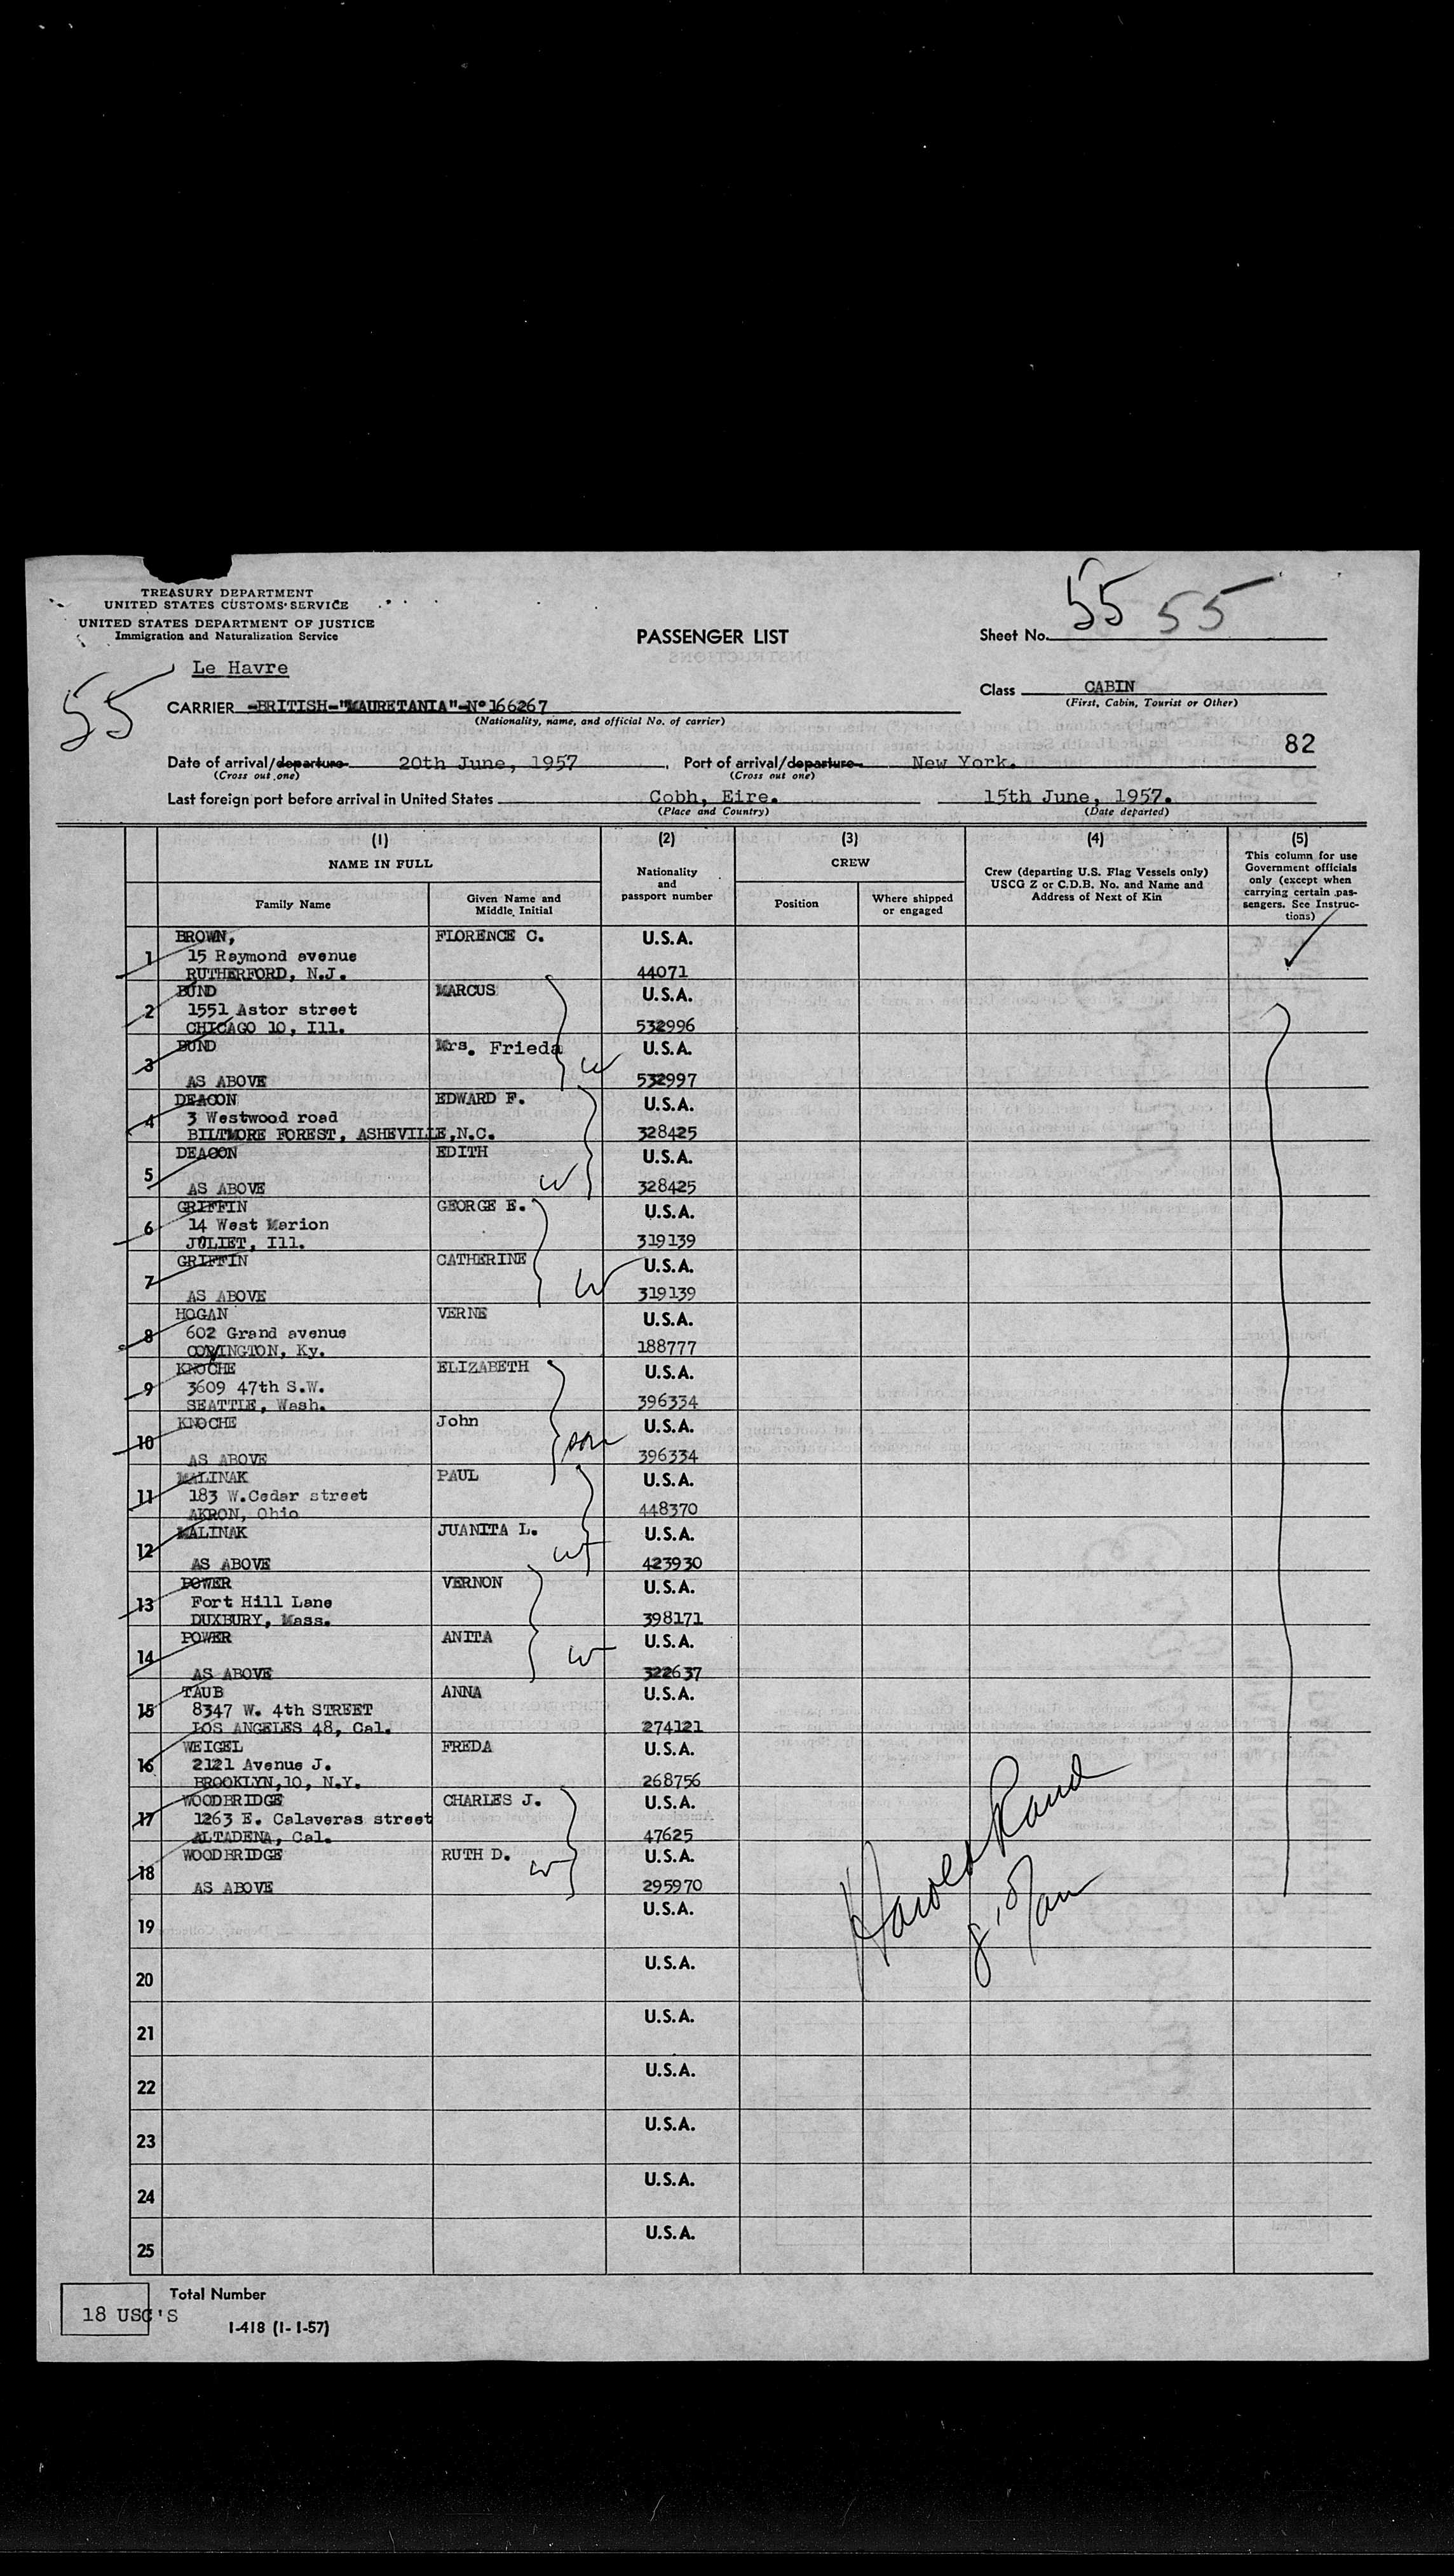 TREASURY DEPARTMENT
UNITED STATES CUSTOMS SERVICE
UNITED STATES DEPARTMENT OF JUSTICE
Immigration and Naturalization Service
PASSENGER LIST
Sheet No. 55 55
Le Havre
55
CARRIER -BRITISH-"MAURETANIA"-Nº166267
(Nationality, name, and official No. of carrier)
Class CABIN
(First, Cabin, Tourist or Other)
82
Date of arrival/departure 20th June, 1957 Port of arrival/departure New York.
(Cross out one) (Cross out one)
Last foreign port before arrival in United States Cobh, Eire. 15th June, 1957.
(Place and Country) (Date departed)
(1) (2) (3) (4) (5)
NAME IN FULL
Family Name
Given Name and Middle Initial
Nationality and passport number
CREW
Position
Where shipped or engaged
Crew (departing U.S. Flag Vessels only)
USCG Z or C.D.B. No. and Name and
Address of Next of Kin
This column for use
Government officials
only (except when
carrying certain pas-
sengers. See Instruc-
tions)
1 BROWN, FLORENCE C. U.S.A.
15 Raymond avenue
RUTHERFORD, N.J. 44071
2 BUND MARCUS U.S.A.
1551 Astor street
CHICAGO 10, Ill. 532996
3 BUND Mrs. Frieda U.S.A.
W
AS ABOVE 532997
4 DEACON EDWARD F. U.S.A.
3 Westwood road
BILTMORE FOREST, ASHEVILLE,N.C. 328425
5 DEACON EDITH U.S.A.
W
AS ABOVE 328425
6 GRIFFIN GEORGE E. U.S.A.
14 West Marion
JOLIET, Ill. 319139
7 GRIFFIN CATHERINE U.S.A.
W
AS ABOVE 319139
8 HOGAN VERNE U.S.A.
602 Grand avenue
COVINGTON, Ky. 188777
9 KNOCHE ELIZABETH U.S.A.
3609 47th S.W.
SEATTLE, Wash. 396334
10 KNOCHE John U.S.A.
son
AS ABOVE 396334
11 MALINAK PAUL U.S.A.
183 W.Cedar street
AKRON, Ohio 448370
12 MALINAK JUANITA L. U.S.A.
W
AS ABOVE 423930
13 POWER VERNON U.S.A.
Fort Hill Lane
DUXBURY, Mass. 398171
14 POWER ANITA U.S.A.
W
AS ABOVE 322637
15 TAUB ANNA U.S.A.
8347 W. 4th STREET
LOS ANGELES 48, Cal. 274121
16 WEIGEL FREDA U.S.A.
2121 Avenue J.
BROOKLYN,10, N.Y. 268756
17 WOODBRIDGE CHARLES J. U.S.A.
1263 E. Calaveras street
ALTADENA, Cal. 47625
18 WOODBRIDGE RUTH D. U.S.A.
W
AS ABOVE 295970
Harold Rand
19 U.S.A.
20 U.S.A.
21 U.S.A.
22 U.S.A.
23 U.S.A.
24 U.S.A.
25 U.S.A.
Total Number
18 USC'S
I-418 (1-1-57)